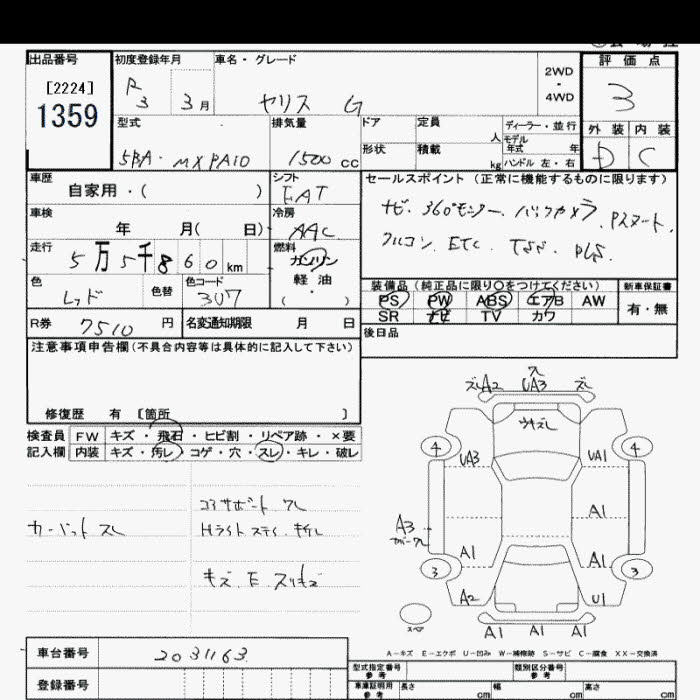 出品番号 初度登録年月 車名・グレード 評価点
[2224] R3 3月 ヤリス G 2WD・4WD 3
1359
外装 内装
D C
型式 排気量 ドア 定員 人 ディーラー・並行
5BA・MXPA10 1500cc 形状 積載 kg モデル年式 年
ハンドル 左・右
車歴 シフト セールスポイント(正常に機能するものに限ります)
自家用・( ) FAT
ナビ. 360°モニター. バックカメラ. Pスタート.
クルコン. ETC. TSS. PCS.
車検 冷房
年 月( 日) AAC
走行 燃料
5万5千860km ガソリン
軽油
( ・ )
色 色替 色コード
レッド 3U7
装備品(純正品に限り○をつけてください) 新車保証書
PS PW ABS エアB AW 有・無
SR ナビ TV カワ
R券 7510円 名変通知期限 月 日
後日品
注意事項申告欄(不具合内容等は具体的に記入して下さい)
修復歴 有 [箇所 ]
検査員 FW キズ・飛石・ヒビ割・リペア跡・×要
記入欄 内装 キズ・汚レ・コゲ・穴・スレ・キレ・破レ
コアサポート ワレ
カーペット スレ Hライト ステイ キレ
キズ.E.スリキズ
ズレA2 ワレ UA3 ズレ
ウキズレ
4 4
UA3 UA1
A3 A1
A1 A1
3 3
A2 U1
スペア
A1 A1 A1
A-キズ E-エクボ U-凹み W-補修跡 S-サビ C-腐食 XX-交換済
車台番号 2031163
登録番号
型式指定番号 参考 類別区分番号 参考
車庫証明用 参考 長さ cm 幅 cm 高さ cm